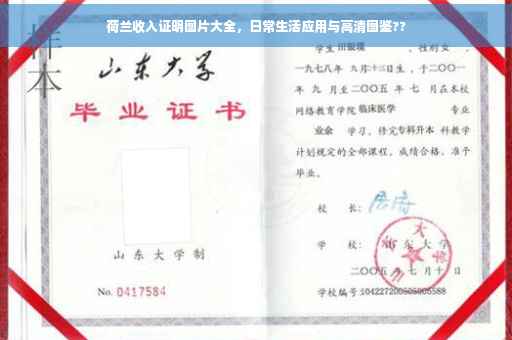 荷兰收入证明图片大全，日常生活应用与高清图鉴??
样本
山东大学
毕业证书
山东大学制
No. 0417584
学生 性别女，
一九七八年 九月十三日生，于二〇〇一
年 九 月至二〇〇五 年 七 月在本校
网络教育学院 临床医学 专业
业余 学习，修完专科升本 科教学
计划规定的全部课程，成绩合格，准予
毕业。
校 长：
学 校：山东大学
二〇〇五 年 七 月 十 日
学校编号:104227200505005588